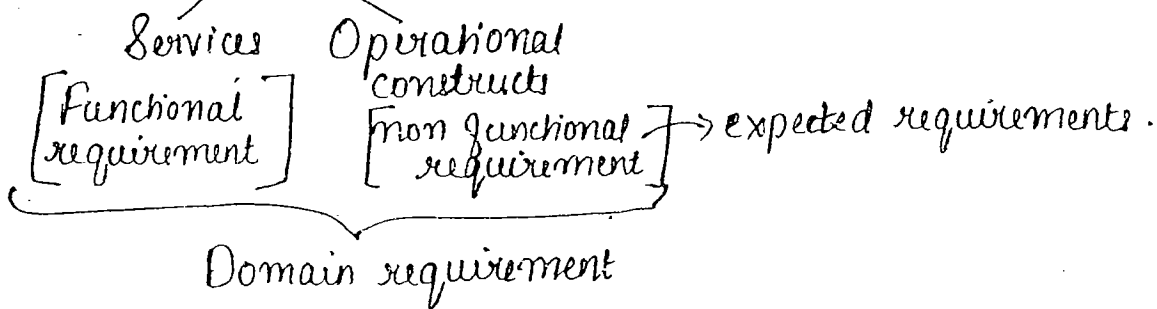 Services Operational
constructs
[Functional
requirement]
[non functional
requirement] → expected requirements.
Domain requirement